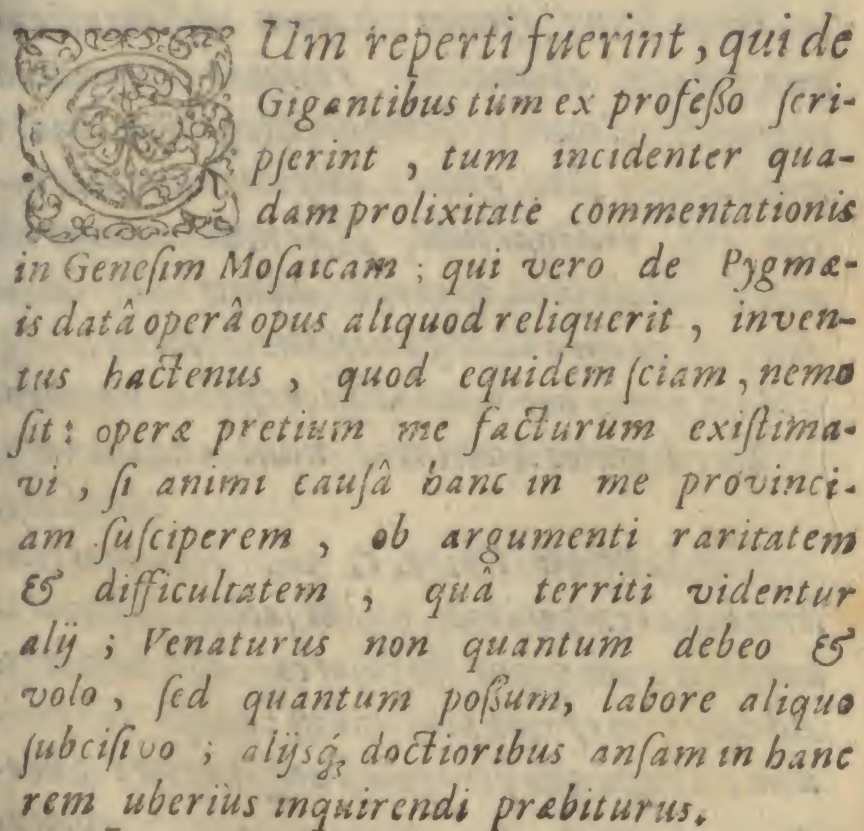 CUm reperti fuerint, qui de
Gigantibus tùm ex profeſſo ſcri-
pſerint, tum incidenter qua-
dam prolixitate commentationis
in Geneſim Moſaicam; qui vero de Pygmæ-
is datâ operâ opus aliquod reliquerit, inven-
tus hactenus, quod equidem ſciam, nemo
ſit: operæ pretium me facturum exiſtima-
vi, ſi animi cauſâ hanc in me provinci-
am ſuſciperem, ob argumenti raritatem
& difficultatem, quâ territi videntur
alij; Venaturus non quantum debeo &
volo, ſed quantum poſſum, labore aliquo
ſubciſivo; alijsq́ꝫ doctioribus anſam in hanc
rem uberiùs inquirendi præbiturus.